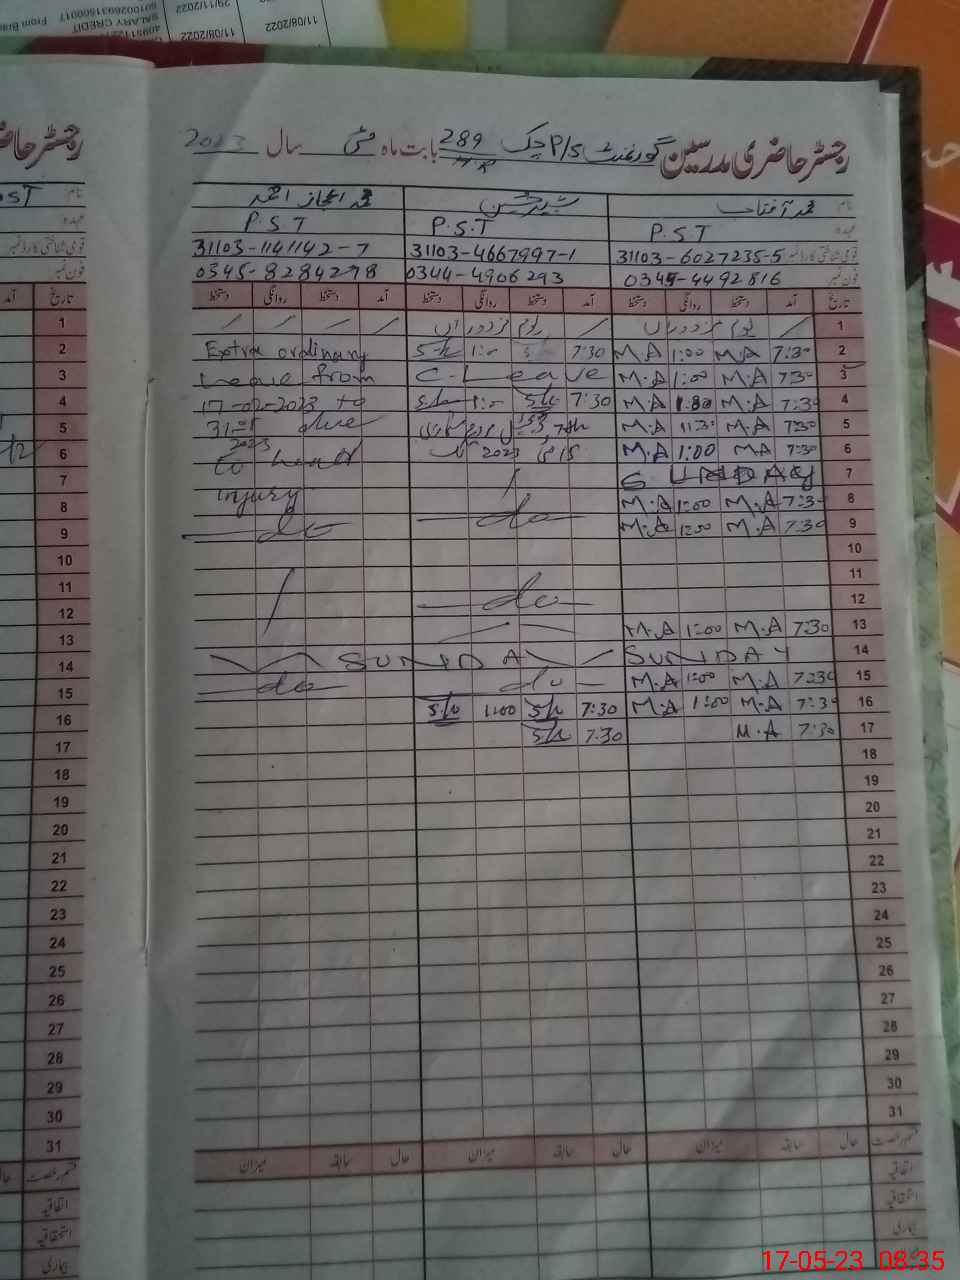 11/08/2022
29/11/2022
11/08/2022
SALARY CREDIT
رجسٹر حاضری مدرسین گورنمنٹ P/S چک 289 بابت ماہ مئی سال 2023
HR
نام محمد آفتاب محمد اعجاز احمد
عہدہ P.S.T P.S.T P.S.T
قومی شناختی کارڈ نمبر 31103-6027235-5 31103-4667997-1 31103-1141142-7
فون نمبر 0345-4492816 0344-4906293 0345-8284278
تاریخ آمد دستخط روانگی دستخط آمد دستخط روانگی دستخط آمد دستخط روانگی دستخط
1 یوم مزدوراں یوم مزدوراں
2 7:30 M.A 1:00 M.A 7:30 1:00 S/h Extra ordinary
3 7:30 M.A 1:00 M.A C-Leave Leave from
4 7:30 M.A 1:00 M.A 7:30 S/h 1:00 S/h 17-02-2023 to
5 7:30 M.A 11:30 M.A 31-5 due
2023
6 7:30 M.A 1:00 M.A 15 مئی 2023 تک to hand
7 SUNDAY injury
8 7:30 M.A 1:00 M.A
9 7:30 M.A 1:00 M.A do do
10
11
12 do
13 7:30 M.A 1:00 M.A
14 SUNDAY SUNDAY
15 7:30 M.A 1:00 M.A do do
16 7:30 M.A 1:00 M.A 7:30 S/h 1:00 S/h
17 7:30 M.A 7:30 S/h
18
19
20
21
22
23
24
25
26
27
28
29
30
31
قسم رخصت حال سابقہ میزان حال سابقہ میزان حال سابقہ میزان
اتفاقیہ
استحقاقیہ
بیماری
رجسٹر حاضر
نام
عہدہ PST
قومی شناختی کارڈ نمبر
فون نمبر
تاریخ آمد
1
2
3
4
5
6
7
8
9
10
11
12
13
14
15
16
17
18
19
20
21
22
23
24
25
26
27
28
29
30
31
قسم رخصت حال
اتفاقیہ
استحقاقیہ
بیماری
17-05-23 08:35